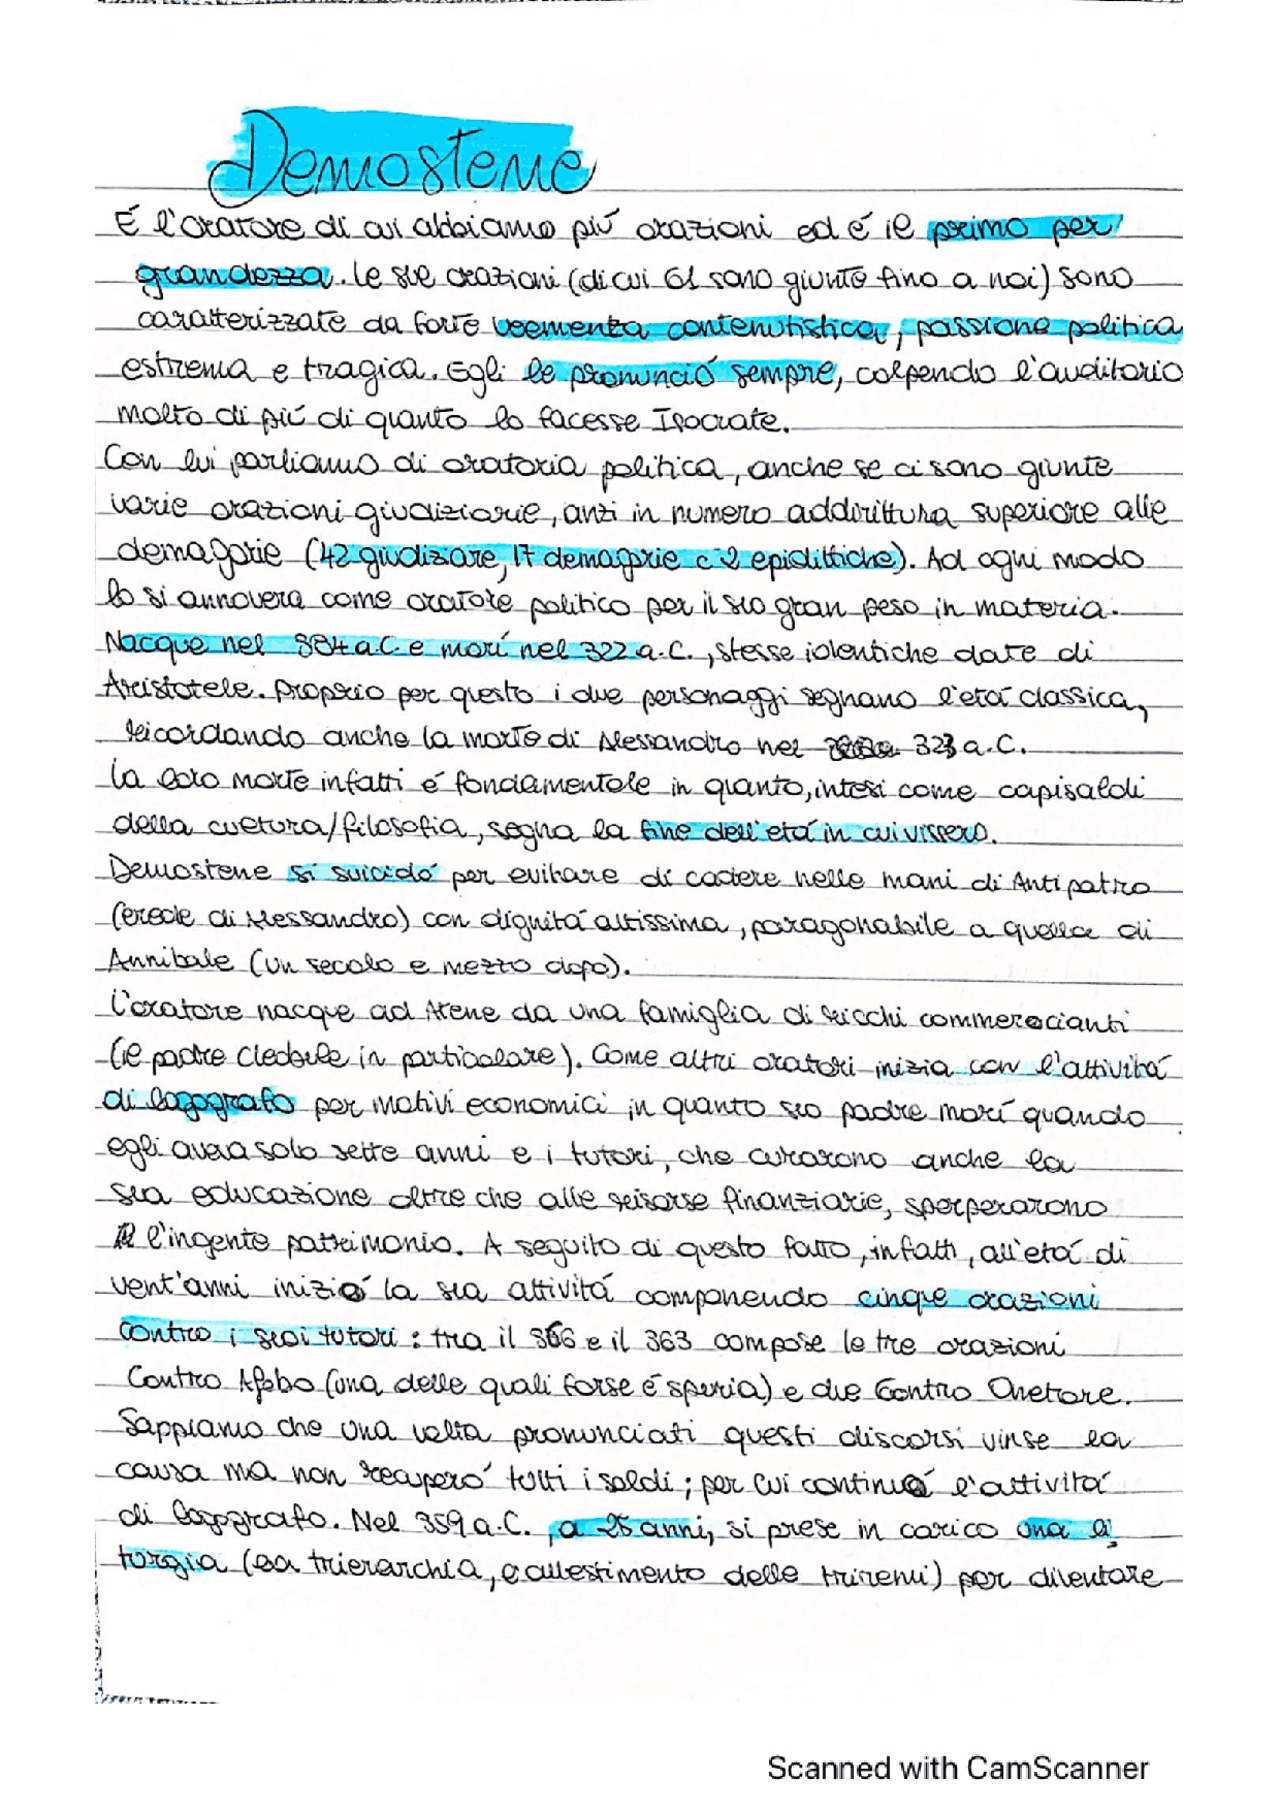 Demostene
É l'oratore di cui abbiamo più orazioni ed é il primo per
grandezza. Le sue orazioni (di cui 61 sono giunte fino a noi) sono
caratterizzate da forte veementa contenutistica, passione politica
estrema e tragica. Egli le pronunció sempre, colpendo l'auditorio
molto di piú di quanto lo facesse Isocrate.
Con lui parliamo di oratoria politica, anche se ci sono giunte
varie orazioni giudiziarie, anzi in numero addirittura superiore alle
demagorie (42 giudizare, 17 demagorie e 2 epidittiche). Ad ogni modo
lo si annovera come oratore politico per il suo gran peso in materia.
Nacque nel 384 a.C. e morí nel 322 a.C., stesse identiche date di
Aristotele. Proprio per questo i due personaggi segnano l'etá classica,
ricordando anche la morte di Alessandro nel 323 a.C.
La loro morte infatti é fondamentale in quanto, intesi come capisaldi
della cultura/filosofia, segna la fine dell'etá in cui vissero.
Demostene si suicidó per evitare di cadere nelle mani di Antipatro
(erede di Alessandro) con dignitá altissima, paragonabile a quella di
Annibale (un secolo e mezzo dopo).
L'oratore nacque ad Atene da una famiglia di ricchi commerocianti
(il padre Cleobile in particolare). Come altri oratori inizia con l'attivitá
di logografo per motivi economici in quanto suo padre morí quando
egli aveva solo sette anni e i tutori, che curarono anche la
sua educazione oltre che alle risorse finanziarie, sperperarono
l'ingente patrimonio. A seguito di questo fatto, infatti, all'etá di
vent'anni inizió la sua attivitá componendo cinque orazioni
contro i suoi tutori: tra il 366 e il 363 compose le tre orazioni
Contro Afobo (una delle quali forse é spuria) e due Contro Onetore.
Sappiamo che una volta pronunciati questi discorsi vinse la
causa ma non recuperó tutti i soldi; per cui continuó l'attivitá
di logografo. Nel 359 a.C., a 25 anni, si prese in carico una li
turgia (la trierarchia, l'allestimento delle triremi) per diventare
Scanned with CamScanner